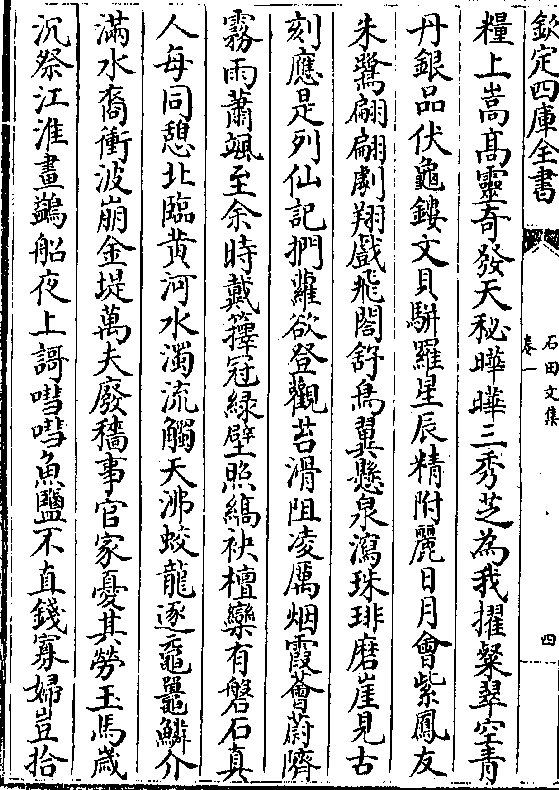 欽定四庫全書
石田文集
卷一
四
糧上嵩高靈奇發天秘曄曄三秀芝為我擢粲翠空青
丹銀品伏龜鏤文貝駢羅星辰精附麗日月會紫鳳友
朱鷺翩翩劇翔戲飛閣舒鳥翼懸泉瀉珠琲磨崖見古
刻應是列仙記捫蘿欲登觀苔滑阻凌厲烟霞薈蔚隮
霧雨蕭颯至余時戴籜冠綠壁照縞袂檀欒有磐石真
人每同憩北臨黄河水濁流觸天沸蛟龍逐黿鼉鱗介
滿水裔衝波崩金堤萬夫廢穡事官家憂其勞玉馬歲
沉祭江淮畫鷁船夜上謌嘒嘒魚鹽不直錢寡婦豈拾